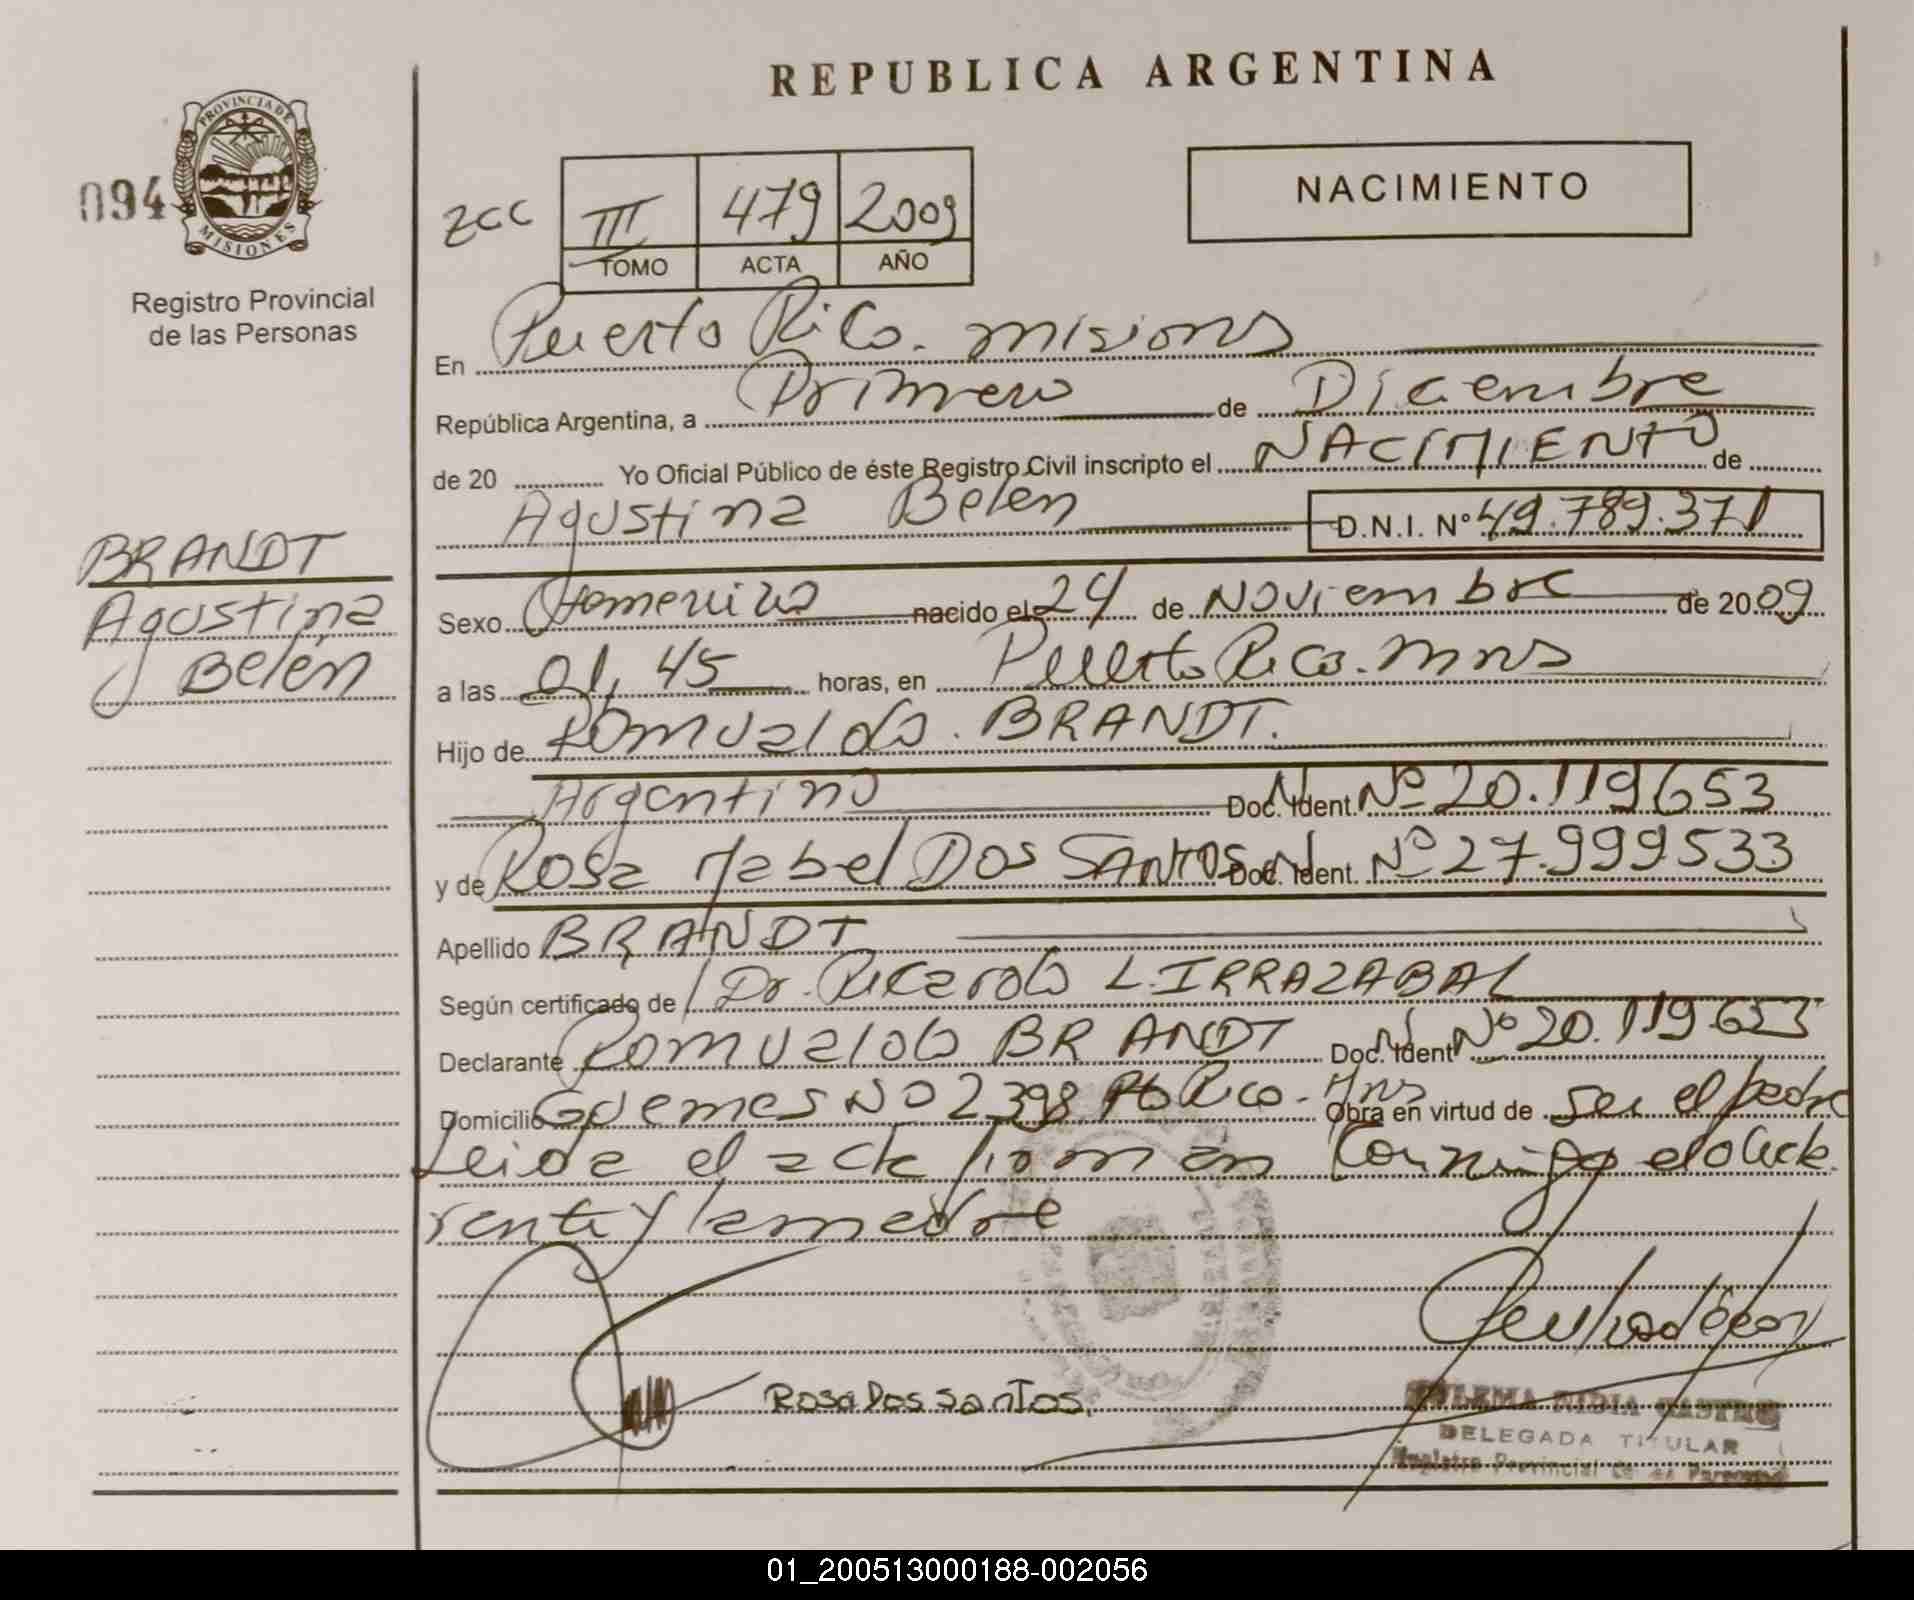 REPUBLICA ARGENTINA
PROVINCIA DE MISIONES
094
Registro Provincial
de las Personas
NACIMIENTO
ZCC III 479 2009
TOMO ACTA AÑO
En Puerto Rico. misiones
República Argentina, a Primero de Diciembre
de 20 Yo Oficial Público de éste Registro Civil inscripto el NACIMIENTO de
Agustina Belen D.N.I. N° 49.789.371
BRANDT
Agustina
Belén
Sexo Femenino nacido el 24 de Noviembre de 2009
a las 01,45 horas, en Puerto Rico. Mns
Hijo de Romualdo. BRANDT.
Argentino Doc. Ident. Nº 20.119653
y de Rosa Mabel Dos SANTOS Doc. Ident. Nº 27.999533
Apellido BRANDT
Según certificado de Dr. Ricardo L. IRRAZABAL
Declarante Romualdo BRANDT Doc. Ident Nº 20.119.653
Domicilio Guemes Nº 2398 Pto Rico. Mns Obra en virtud de ser el padre
Leida el acta firman conmigo el decla
rante y la madre
Rosa Dos Santos.
ZULEMA NIDIA CASTRO
DELEGADA TITULAR
Registro Provincial de las Personas
01_200513000188-002056